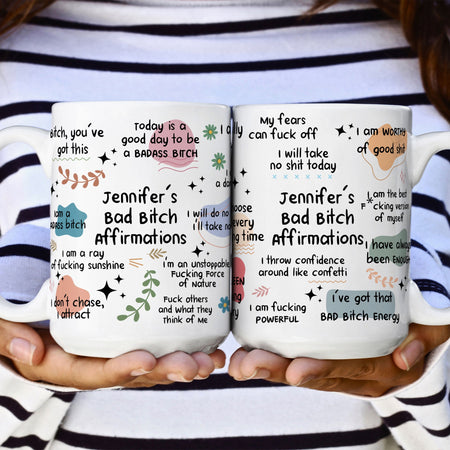 Bitch, you've
got this
Today is a
good day to be
a BADASS BITCH
Jennifer's
Bad Bitch
Affirmations
I am a
badass bitch
I will do no
I'll take no
I am a ray
of fucking sunshine
I'm an unstoppable
Fucking Force
of Nature
I don't chase,
I attract
Fuck others
and what they
Think of Me
My fears
can fuck off
I am WORTHY
of good shit
I will take
no shit today
Jennifer's
Bad Bitch
Affirmations
I am the best
F*cking version
of myself
I have always
been ENOUGH
I throw confidence
around like confetti
I am fucking
POWERFUL
I've got that
BAD Bitch Energy